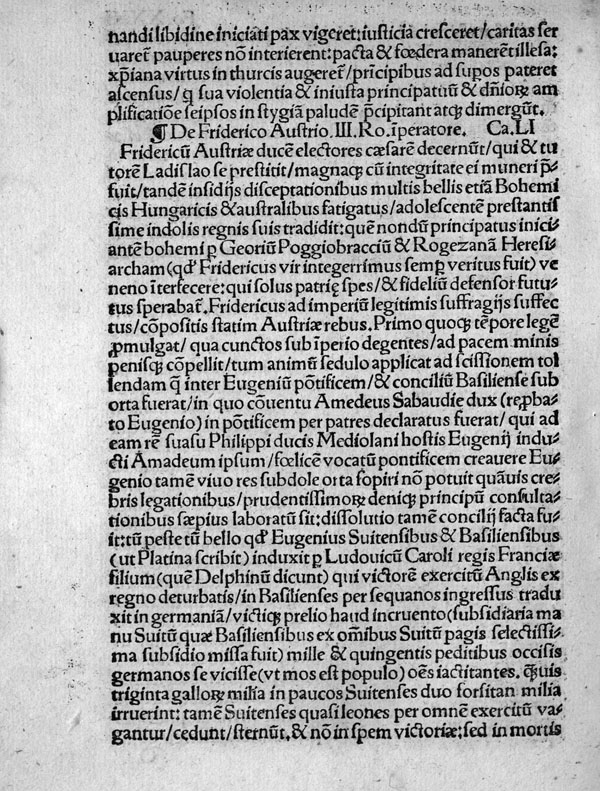 nandi libidine iniciati pax vigeret: iusticia cresceret/caritas ser
uaret̃ pauperes nō interierent: pacta & fœdera manerēt illesa:
xp̄iana virtus in thurcis augeret̃/prīcipibus ad supos pateret
ascensus/ q̄ sua violentia & iniusta principatuū & dn̄ioꝝ am
plificatiōe seipsos in stygiā paludē p̄cipitant atqꝫ dimergūt.
¶ De Friderico Austrio.III.Ro.īperatore. Ca.LI
Fridericū Austriæ ducē electores cæsarē decernūt/qui & tu
torē Ladislao se prestitit/magnaqꝫ cū integritate ei muneri p̄⸗
fuit/tandē insidijs disceptationibus multis bellis etiā Bohemi
cis Hungaricis & australibus fatigatus/adolescentē prestantis
sime indolis regnis suis tradidit: quē nondū principatus inici⸗
antē bohemi ꝑ Georiū Poggiobracciū & Rogezanā Heresi⸗
archam (qd̓ Fridericus vir integerrimus semꝑ veritus fuit) ve
neno īterfecere: qui solus patrię spes/& fideliū defensor futu⸗
tus sperabat̃. Fridericus ad imperiū legitimis suffragijs suffec
tus/cōpositis statim Austriæ rebus. Primo quoqꝫ tēpore legē
ꝓmulgat/ qua cunctos sub īperio degentes/ad pacem minis
penisqꝫ cōpellit/tum animū sedulo applicat ad scissionem tol
lendam q̄ inter Eugeniū pōtificem/& conciliū Basiliense sub
orta fuerat/in quo cōuentu Amedeus Sabaudie dux (reꝓba⸗
to Eugenio) in pōtificem per patres declaratus fuerat/ qui ad
eam rē suasu Philippi ducis Mediolani hostis Eugenij indu⸗
cti Amadeum ipsum/fœlicē vocatū pontificem creauere Eu⸗
genio tamē viuo res subdole orta sopiri nō potuit quāuis cre⸗
bris legationibus/prudentissimoꝝ deniqꝫ principū consulta⸗
tionibus sæpius laboratū sit: dissolutio tamē concilij facta fu⸗
it: tū peste tū bello qd̓ Eugenius Suitensibus & Basiliensibus
(ut Platina scribit) induxit ꝑ Ludouicū Caroli regis Franciæ
filium (quē Delphinū dicunt) qui victorē exercitū Anglis ex
regno deturbatis/in Basilienses per sequanos ingressus tradu
xit in germaniā/victiqꝫ prelio haud incruento (subsidiaria ma
nu Suitū quæ Basiliensibus ex om̄ibus Suitū pagis selectissi⸗
ma subsidio missa fuit) mille & quingentis peditibus occisis
germanos se vicisse (vt mos est populo) oēs iactitantes. q̄uis
triginta galloꝝ milia in paucos Suitenses duo forsitan milia
irruerint: tamē Suitenses quasi leones per omnē exercitū va⸗
gantur/cedunt/sternūt. & nō in spem victoriæ: sed in mortis